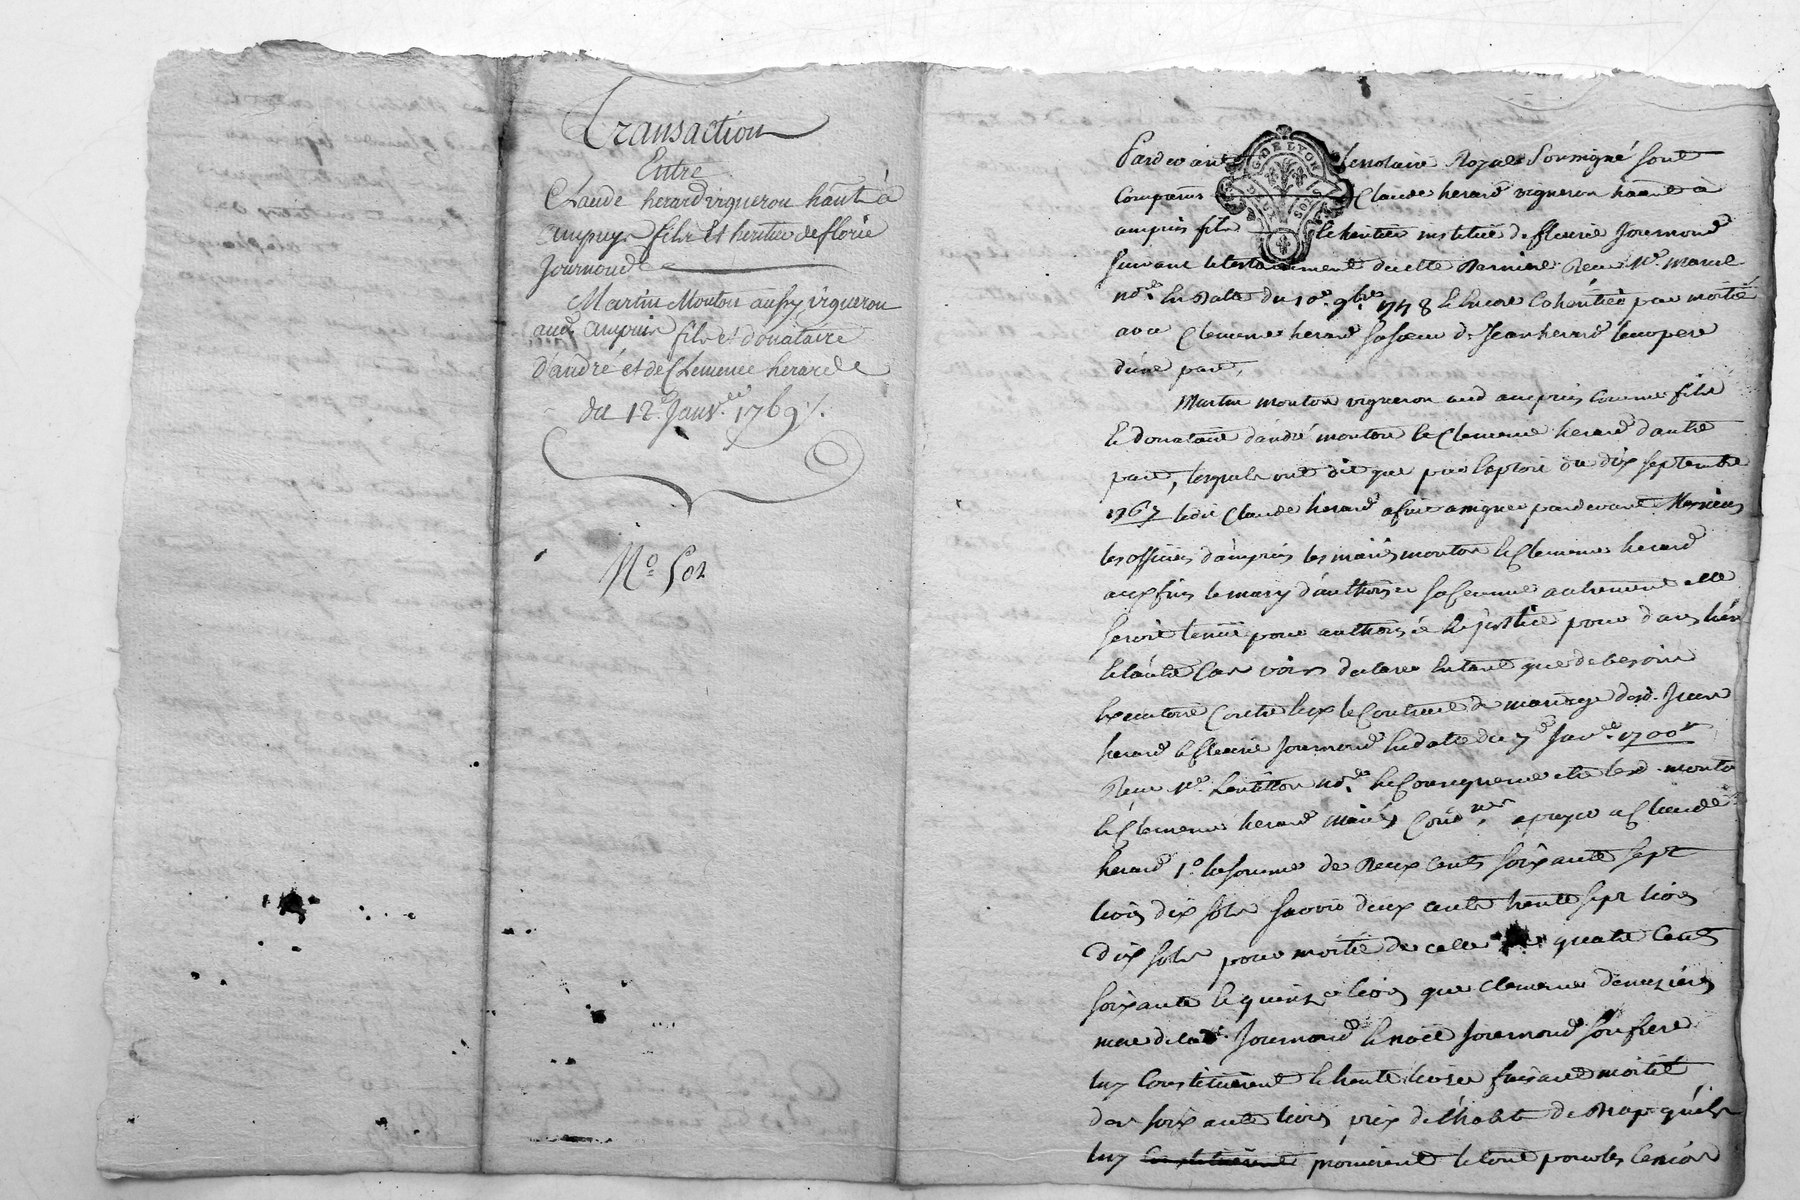 Transaction
Entre
Claude herard vigneron hant à
ampuys fils et heritier de florie
Journoud
Martin Monton aussy vigneron
aud. ampuis fils et donataire
d'andré et de Clemence herard
du 12e Janv.er 1769
No 502
Pardevant le notaire Royal Soussigné sont
Comparus Claude herard vigneron hant à
ampuis fils et heritier institué de fleurie Journoud
suivant le testament de cette derniere Receu Me. Morel
no.re en Datte du 10e. 9bre 1748 et encore Coheritier par moitié
avec Clemence herard sa soeur de Jean herard leur pere
d'une part,
Martin monton vigneron aud ampuis comme fils
et Donataire d'andré monton et Clemence herard d'autre
part, lesquels ont dit que par exploit du dix septembre
1767 ledit Claude herard a fait assigner pardevant Messieurs
les officiers d'ampuis les mariés monton et Clemence herard
aux fins le mary d'authoriser sa femme autrement elle
seroit tenüe pour authorisée de justice pour dans l'un
et l'autre Cas voir declarer entant que de besoin
executoire Contre eux le Contract de mariage desd. Jean
herard et fleurie Journoud en datte du 7e Janv.er 1700
Receu Me. no.re en Consequence etre lesd. monton
et Clemence herard mariés a payer a Claude
herard 1o. la somme de Deux cents soixante sept
livres dix sols savoir deux cents trente sept livres
Dix sols pour moitié de celle de quatre Cents
soixante et quinze livres que Clemence
mere de lad. Journoud et noël Journoud son frere
luy Constituerent et trente livres faisant moitié
des soixante livres prix de l'habit de Drap qu'ils
luy Constituerent promirent le tout pour les